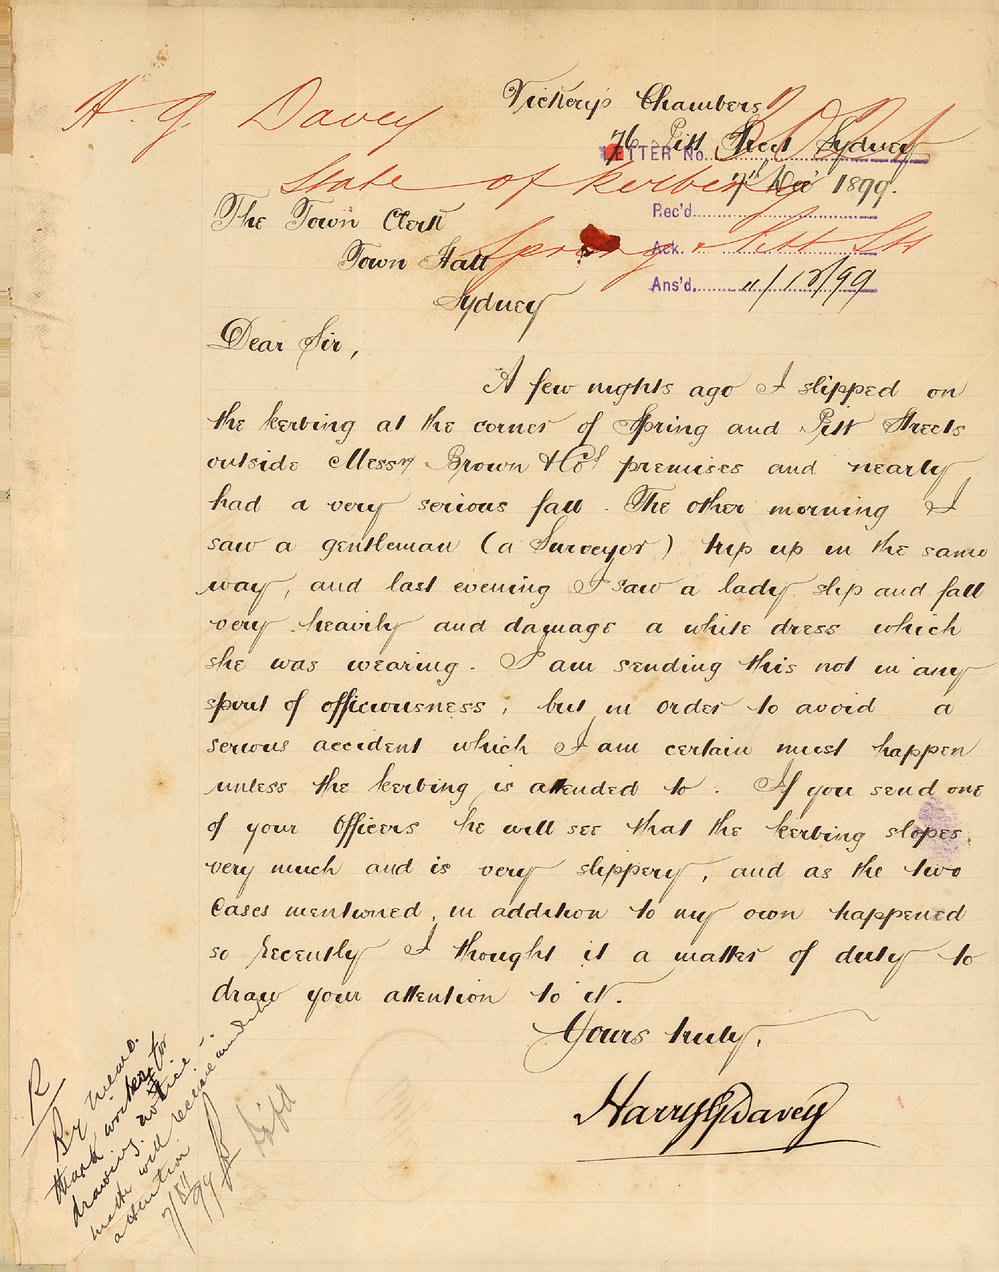 H. G. Davey
Vickery's Chambers
76 Pitt Street Sydney
LETTER No.
State of Kerbing
7th Dec 1899.
Rec'd
The Town Clerk
Town Hall
Spring & Pitt Sts
Ack.
Ans'd. 11/12/99
Sydney
Dear Sir,
A few nights ago I slipped on
the kerbing at the corner of Spring and Pitt Streets
outside Messrs Brown & Cos premises and nearly
had a very serious fall. The other morning I
saw a gentleman (a Surveyor) trip up in the same
way, and last evening I saw a lady slip and fall
very heavily and damage a white dress which
she was wearing. I am sending this not in any
spirit of officiousness, but in order to avoid a
serious accident which I am certain must happen
unless the kerbing is attended to. If you send one
of your Officers he will see that the kerbing slopes
very much and is very slippery, and as the two
cases mentioned, in addition to my own happened
so recently I thought it a matter of duty to
draw your attention to it.
Yours truly,
Harry G Davey
R
By memo.
thank writer for
drawing notice
matter will receive
attention